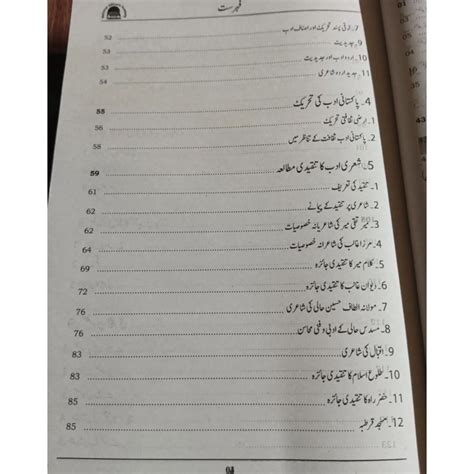 فہرست
7۔ ترقی پسند تحریک اور اصناف ادب 52
8۔ جدیدیت 52
10۔ اردو ادب اور جدیدیت 53
11۔ جدید اردو شاعری 54
4۔ پاکستانی ادب کی تحریک 55
1۔ ارضی ثقافتی تحریک 56
2۔ پاکستانی ادب ثقافت کے تناظر میں 58
5۔ شعری ادب کا تنقیدی مطالعہ 59
1۔ تنقید کی تعریف 61
2۔ شاعری پر تنقید کے پیمانے 62
3۔ میر تقی میر کی شاعرانہ خصوصیات 62
4۔ مرزا غالب کی شاعرانہ خصوصیات 64
5۔ کلام میر کا تنقیدی جائزہ 69
6۔ دیوان غالب کا تنقیدی جائزہ 72
7۔ مولانا الطاف حسین حالی کی شاعری 76
8۔ مسدس حالی کے ادبی و فنی محاسن 76
9۔ اقبال کی شاعری 83
10۔ طلوع اسلام کا تنقیدی جائزہ 83
11۔ خضر راہ کا تنقیدی جائزہ 85
12۔ مسجد قرطبہ 85